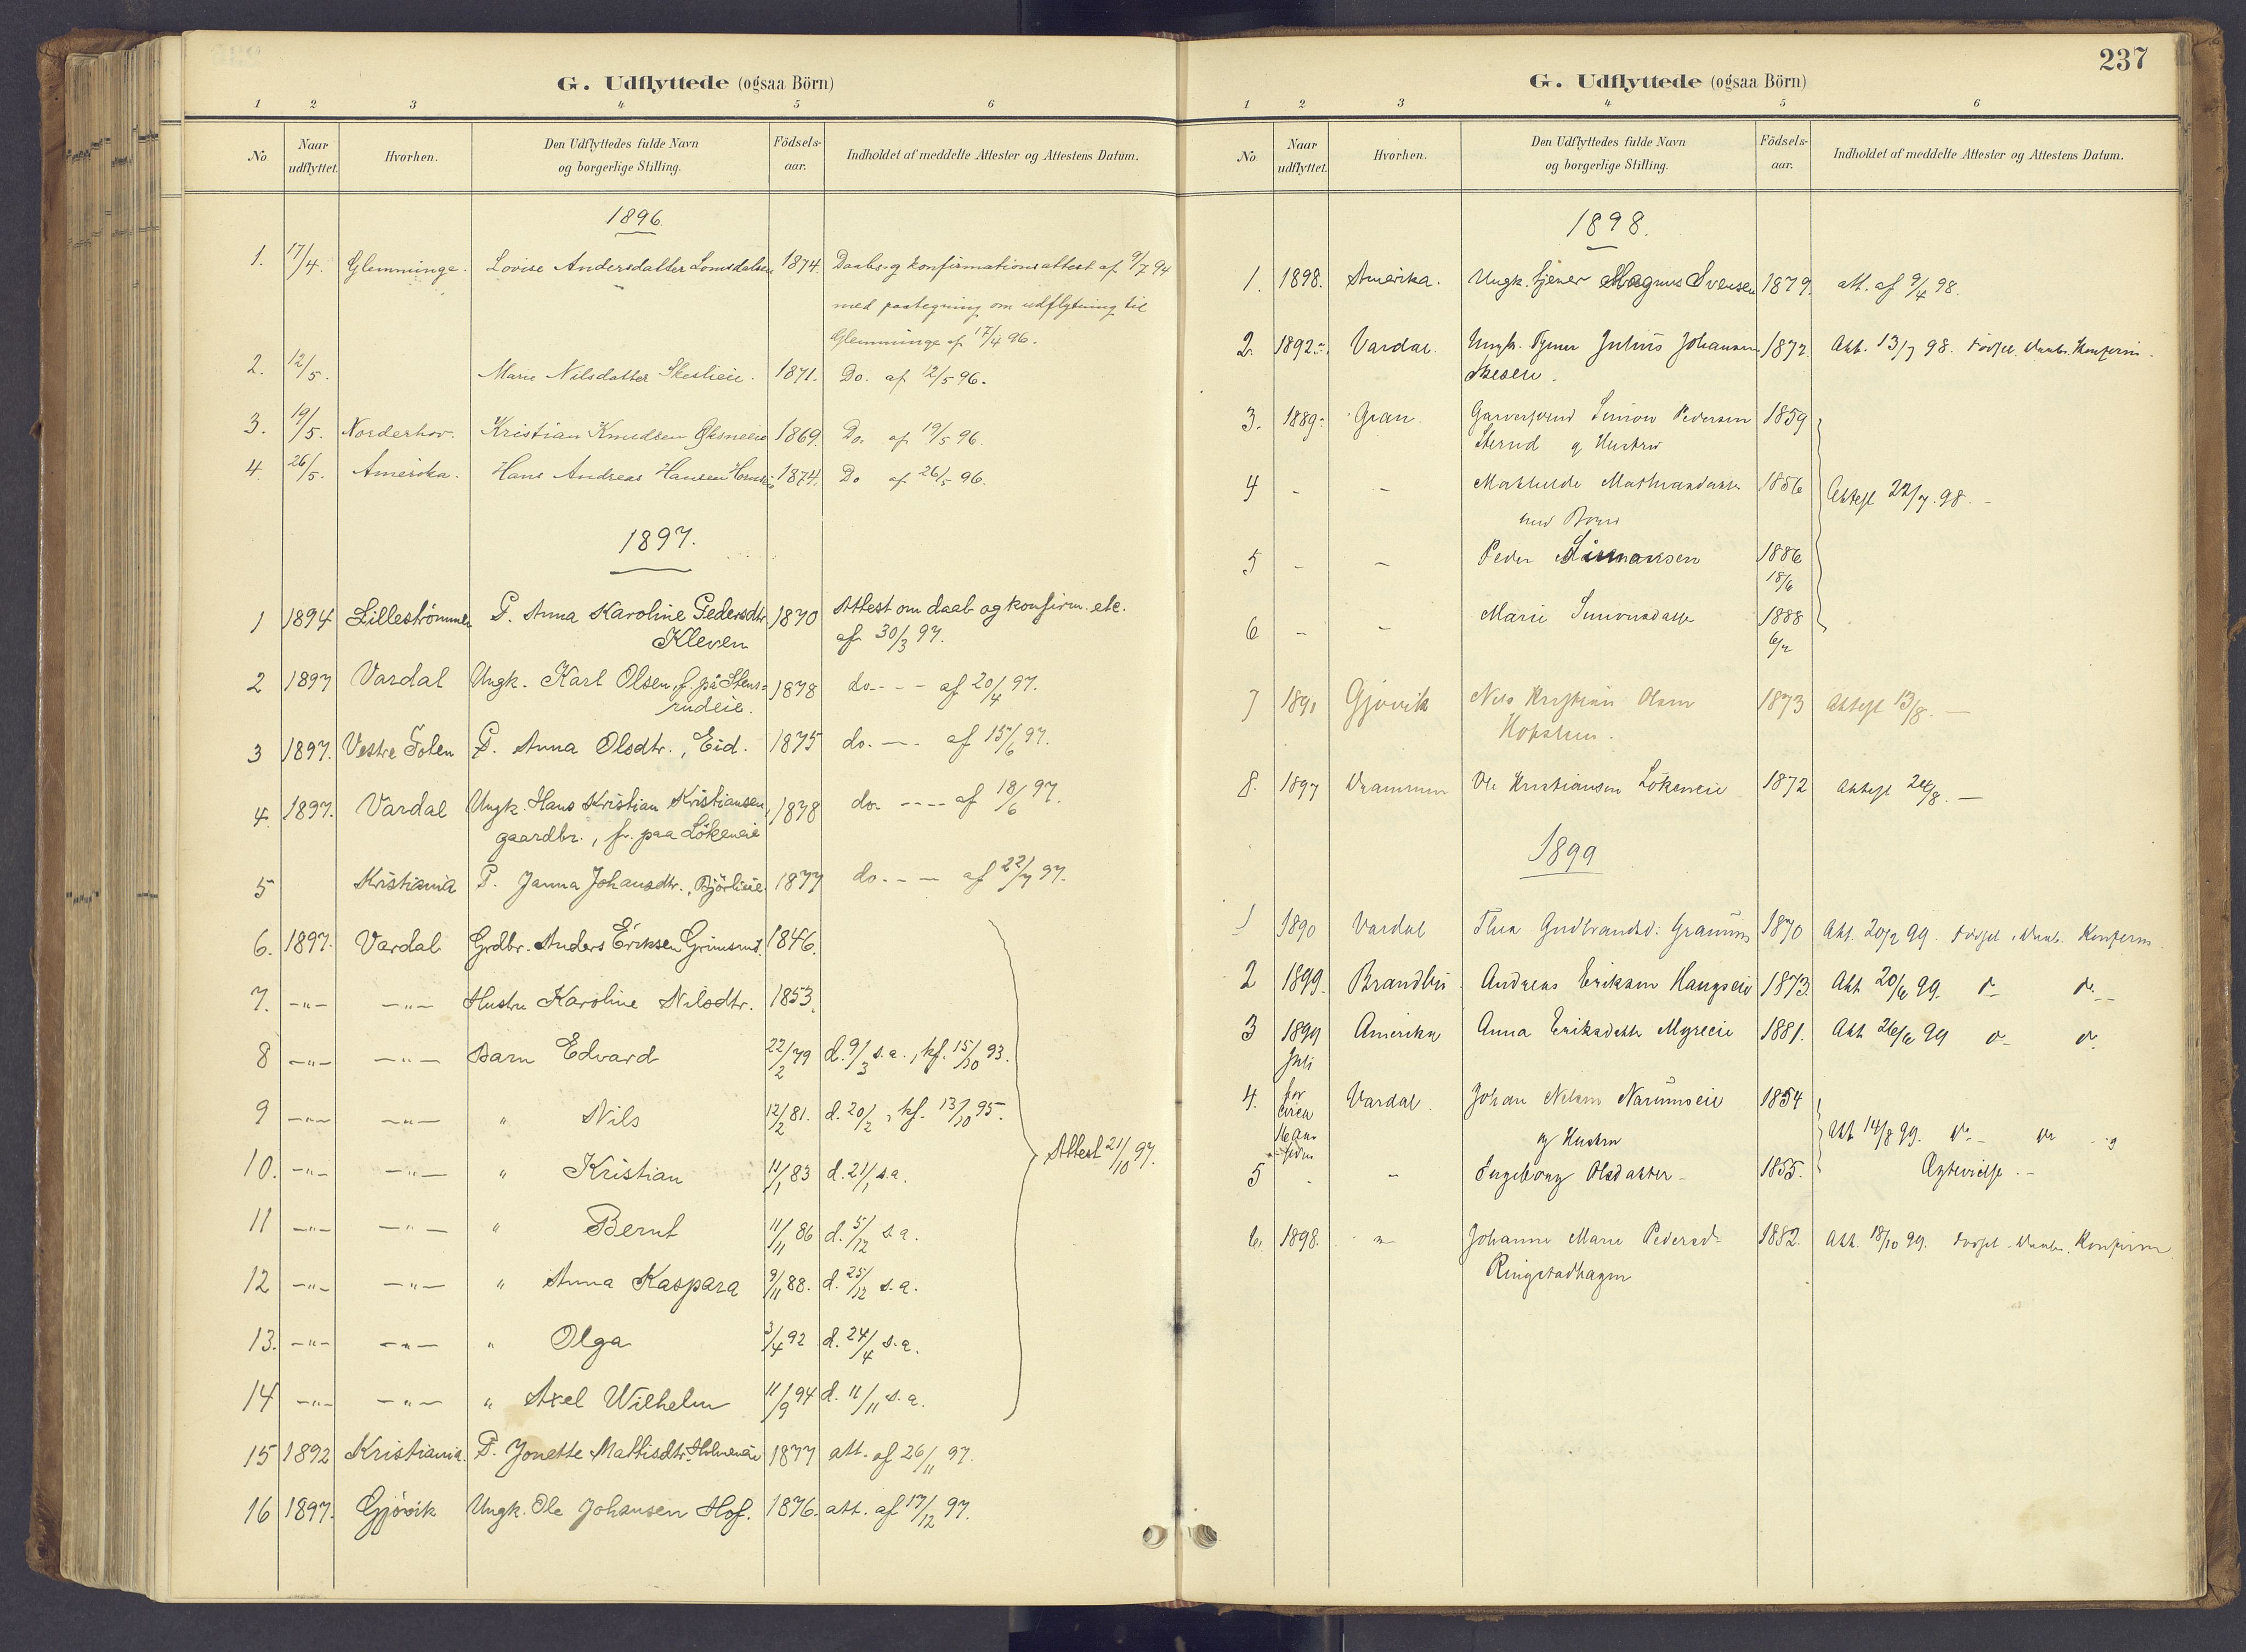 G. Udflyttede (ogsaa Börn)
1 2 3 4 5 6
No Naar udflyttet. Hvorhen. Den Udflyttedes fulde Navn og borgerlige Stilling. Födsels-aar. Indholdet af meddelte Attester og Attestens Datum.
1896.
1. 17/4. Glemminge. Lovise Andersdatter Lomsdalseie 1874. Daabs og konfirmationsattest af 9/7 94
med paategning om udflytning til
Glemminge af 17/4 96.
2. 12/5. Marie Nilsdatter 1871. Do. af 12/5 96.
3. 19/5. Norderhov. Kristian Knudsen 1869. Do. af 19/5 96.
4. 26/5. Amerika. Hans Andreas Hansen 1874. Do af 26/5 96.
1897.
1 1894 Lilleströmmen P. Anna Karoline Pedersdtr. 1870 Attest om daab og konfirm. etc.
Kleven af 30/3 97.
2 1897 Vardal Ungk. Karl Olsen, f. på Stens- 1878 do. - - - af 20/4 97.
rudeie.
3 1897. Vestre Toten P. Anna Olsdtr., Eid. 1875 do. - - af 15/6 97.
4. 1897. Vardal Ungk. Hans Kristian Kristiansen, 1878 do. - - - - af 18/6 97.
gaardbr., f. paa Lökeneie
5 Kristiania P. Janna Johansdtr., Björlieie. 1877 do. - - af 22/7 97.
6. 1897. Vardal Grdbr. Anders Eriksen Grimsrud. 1846.
7. -"- -"- Hustru Karoline Nilsdtr. 1853.
8 -"- -"- Barn Edvard 22/2 79 d. 9/3 s.a., kf. 15/10 93.
9 -"- -"- " Nils 12/2 81. d. 20/2, kf. 13/10 95.
10. -"- -"- " Kristian 11/1 83 d. 21/1 s.a. Attest 21/10 97.
11 -"- -"- " Bernt 11/11 86 d. 5/12 s.a.
12 -"- -"- " Anna Kaspara 9/11 88. d. 25/12 s.a.
13. -"- -"- " Olga 3/4 92 d. 24/4 s.a.
14 -"- -"- " Axel Wilhelm 11/9 94 d. 11/11 s.a.
15 1892 Kristiania. P. Jonette Mattisdtr. Holmeneie 1877 att. af 26/11 97.
16 1897. Gjövik Ungk. Ole Johansen Hof. 1876. att. af 17/12 97.
237
G. Udflyttede (ogsaa Börn)
1 2 3 4 5 6
No. Naar udflyttet. Hvorhen. Den Udflyttedes fulde Navn og borgerlige Stilling. Födsels-aar. Indholdet af meddelte Attester og Attestens Datum.
1898.
1. 1898. Amerika. Ungk. tjener Magnus Svensen 1879. att. af 9/4 98.
2. 1892 Vardal. Ungk. Tjener Julius Johansen 1872. Att. 13/7 98. Födsel. Daabs. Konfirm.
3. 1889 Gran. Simon Pedersen 1859
og Hustru
4 - - Mathilde 1856 Attest 22/7. 98. -
med Börn
5 - - Peder Simonsen 1886
18/6
6 - - Marie Simonsdatter 1888
7 1891 Gjövik Nils Kristian Olsen 1873 Attest 13/8. -
8. 1897 Drammen Ole Kristiansen Lökeneie 1872 Attest -
1899
1 1890 Vardal Thea Gudbrandsd. 1870 Att. 99. Födsel. Daabs. Konfirm.
2 1899. Brandbu. Andreas Eriksen Haugseie 1873. Att. 20/6 99.
3 1899 Amerika Anna Eriksdatter Myreeie 1881. Att. 26/6 99
Juli
4. for Vardal. Johan Nilsen Narumseie 1854
circa
16 Aar og Hustru Att. 14/8 99. - og
siden
5 - - Ingeborg Olsdatter - 1855. Ægtevielse. -
6. 1898. - Johanne Marie Pedersd. 1882. Att. 18/10 99. Födsel. Daabs. Konfirm.
Ringstadhagen